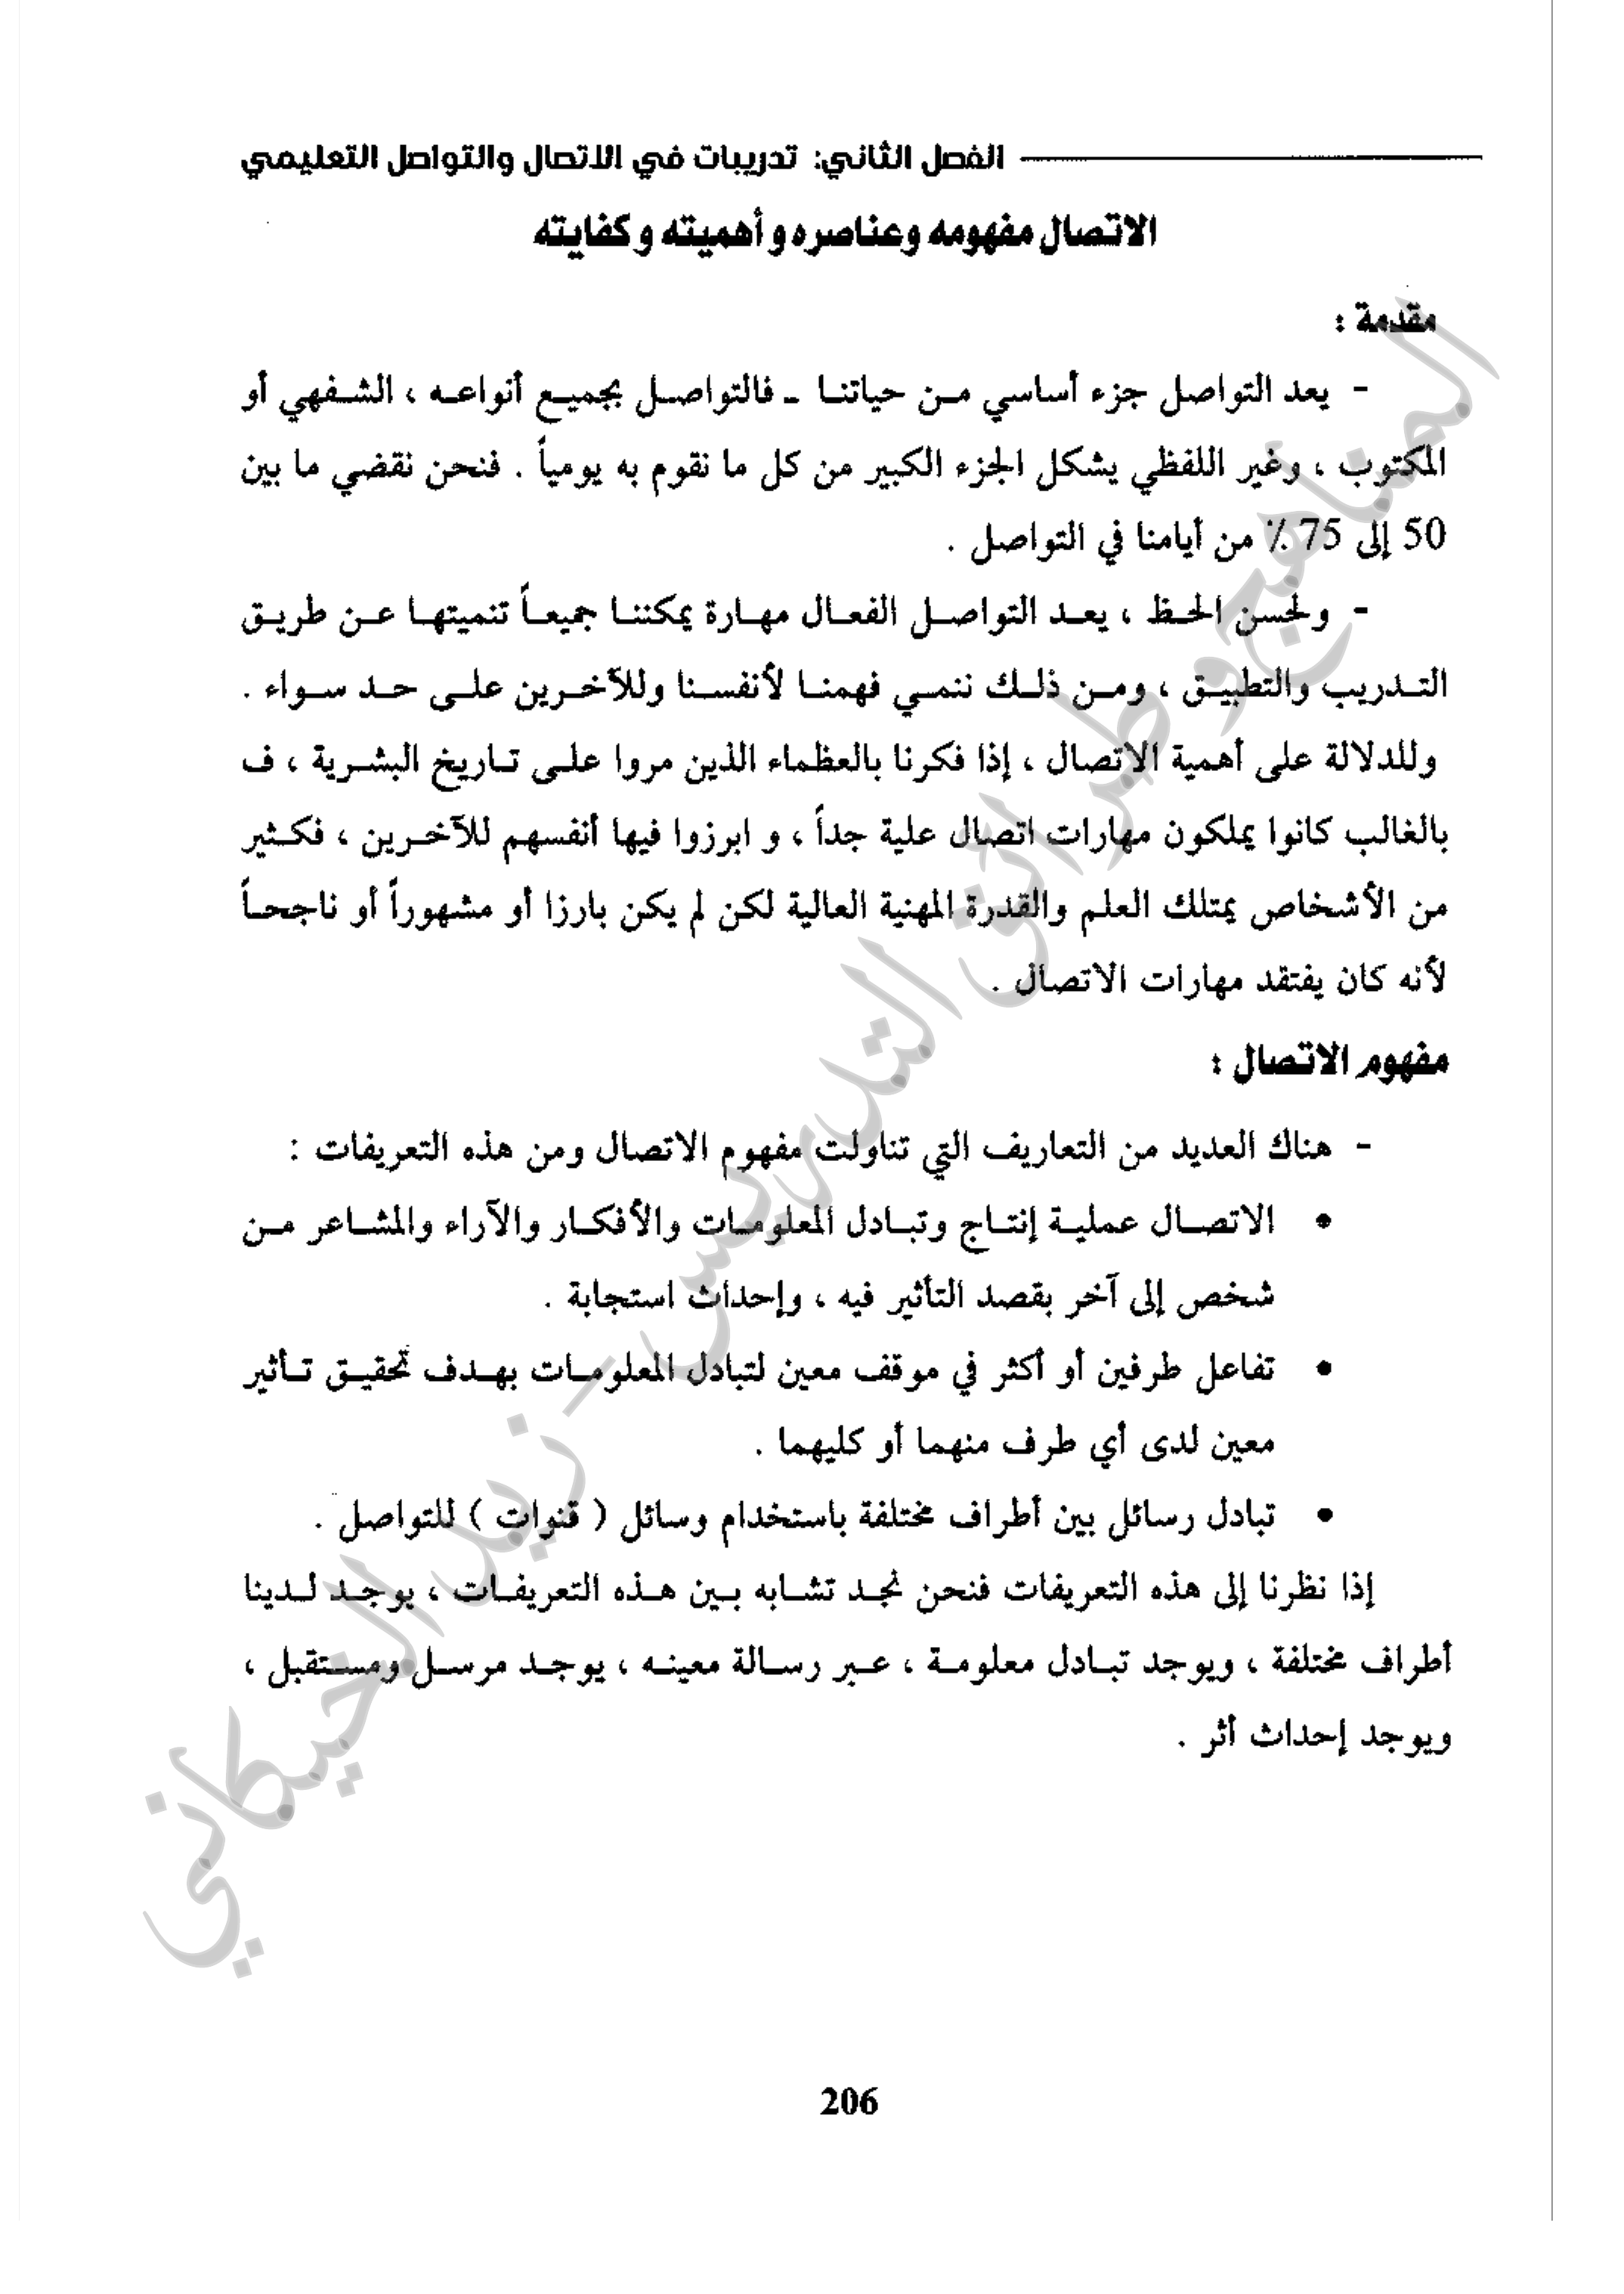 الفصل الثاني: تدريبات في الاتصال والتواصل التعليمي
الاتصال مفهومه وعناصره و أهميته و كفايته
مقدمة :
- يعد التواصل جزء أساسي من حياتنا - فالتواصل بجميع أنواعه ، الشفهي أو
المكتوب ، وغير اللفظي يشكل الجزء الكبير من كل ما نقوم به يومياً . فنحن نقضي ما بين
50 إلى 75 ٪ من أيامنا في التواصل .
- ولحسن الحظ ، يعد التواصل الفعال مهارة يمكننا جميعاً تنميتها عن طريق
التدريب والتطبيق ، ومن ذلك ننمي فهمنا لأنفسنا وللآخرين على حد سواء .
وللدلالة على أهمية الاتصال ، إذا فكرنا بالعظماء الذين مروا على تاريخ البشرية ، ف
بالغالب كانوا يملكون مهارات اتصال علية جداً ، و ابرزوا فيها أنفسهم للآخرين ، فكثير
من الأشخاص يمتلك العلم والقدرة المهنية العالية لكن لم يكن بارزا أو مشهوراً أو ناجحاً
لأنه كان يفتقد مهارات الاتصال .
مفهوم الاتصال :
- هناك العديد من التعاريف التي تناولت مفهوم الاتصال ومن هذه التعريفات :
• الاتصال عملية إنتاج وتبادل المعلومات والأفكار والآراء والمشاعر من
شخص إلى آخر بقصد التأثير فيه ، وإحداث استجابة .
• تفاعل طرفين أو أكثر في موقف معين لتبادل المعلومات بهدف تحقيق تأثير
معين لدى أي طرف منهما أو كليهما .
• تبادل رسائل بين أطراف مختلفة باستخدام وسائل ( قنوات ) للتواصل .
إذا نظرنا إلى هذه التعريفات فنحن نجد تشابه بين هذه التعريفات ، يوجد لدينا
أطراف مختلفة ، ويوجد تبادل معلومة ، عبر رسالة معينه ، يوجد مرسل ومستقبل ،
ويوجد إحداث أثر .
206
المناهج وطرائق التدريس - زيد الخيكاني